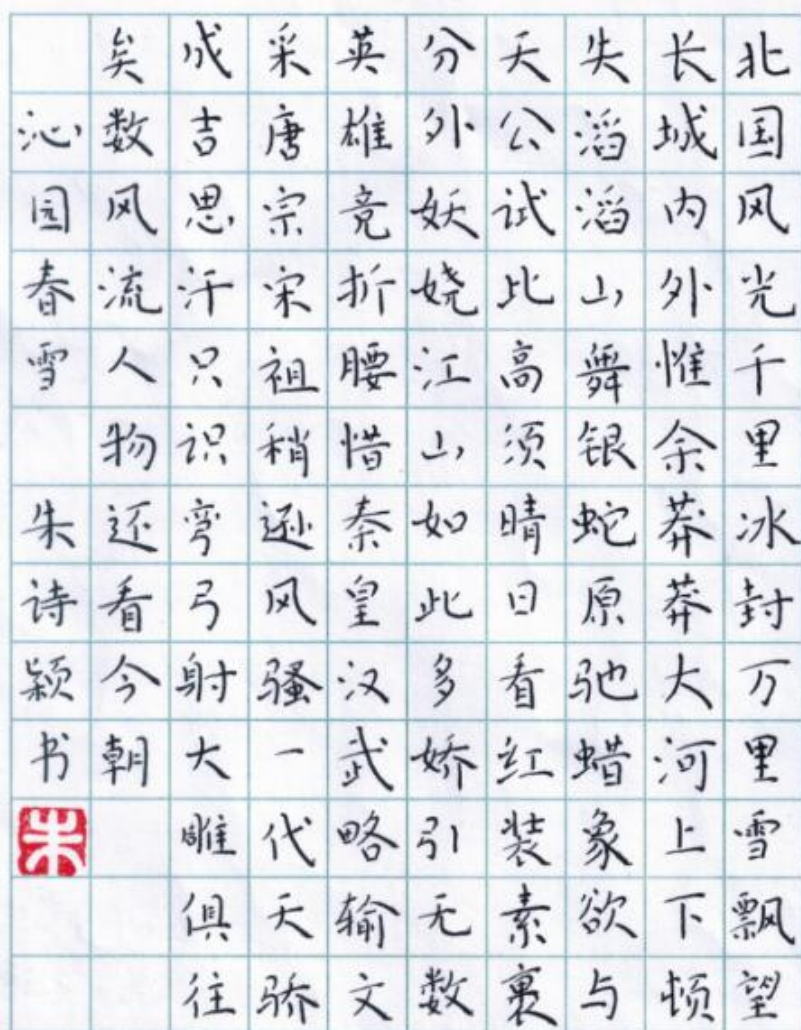 北国风光千里冰封万里雪飘望
长城内外惟余莽莽大河上下顿
失滔滔山舞银蛇原驰蜡象欲与
天公试比高须晴日看红装素裹
分外妖娆江山如此多娇引无数
英雄竞折腰惜秦皇汉武略输文
采唐宗宋祖稍逊风骚一代天骄
成吉思汗只识弯弓射大雕俱往
矣数风流人物还看今朝
沁园春雪 朱诗颖书
朱